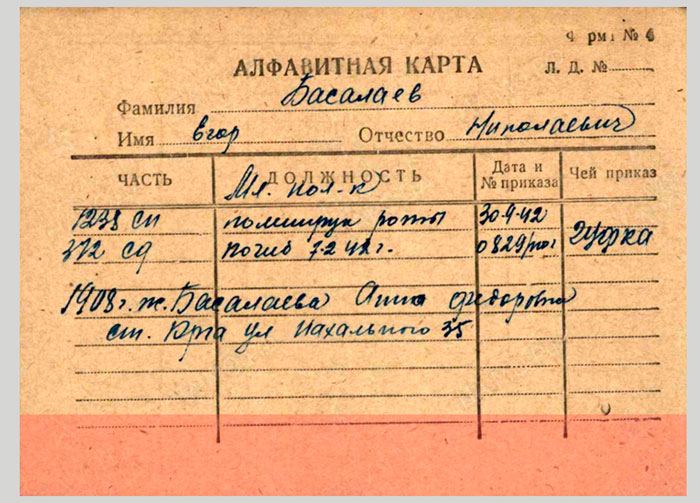 Форма № 4
АЛФАВИТНАЯ КАРТА
Л. Д. №
Фамилия Басалаев
Имя Егор Отчество Николаевич
ЧАСТЬ ДОЛЖНОСТЬ Дата и № приказа Чей приказ
Мл. пол-к
1238 сп политрук роты 30.9.42
372 сд погиб 7.2.42 г. 0829/пог ГУФКА
1908 г. ж. Басалаева Анна Федоровна
ст. Юрга ул 35